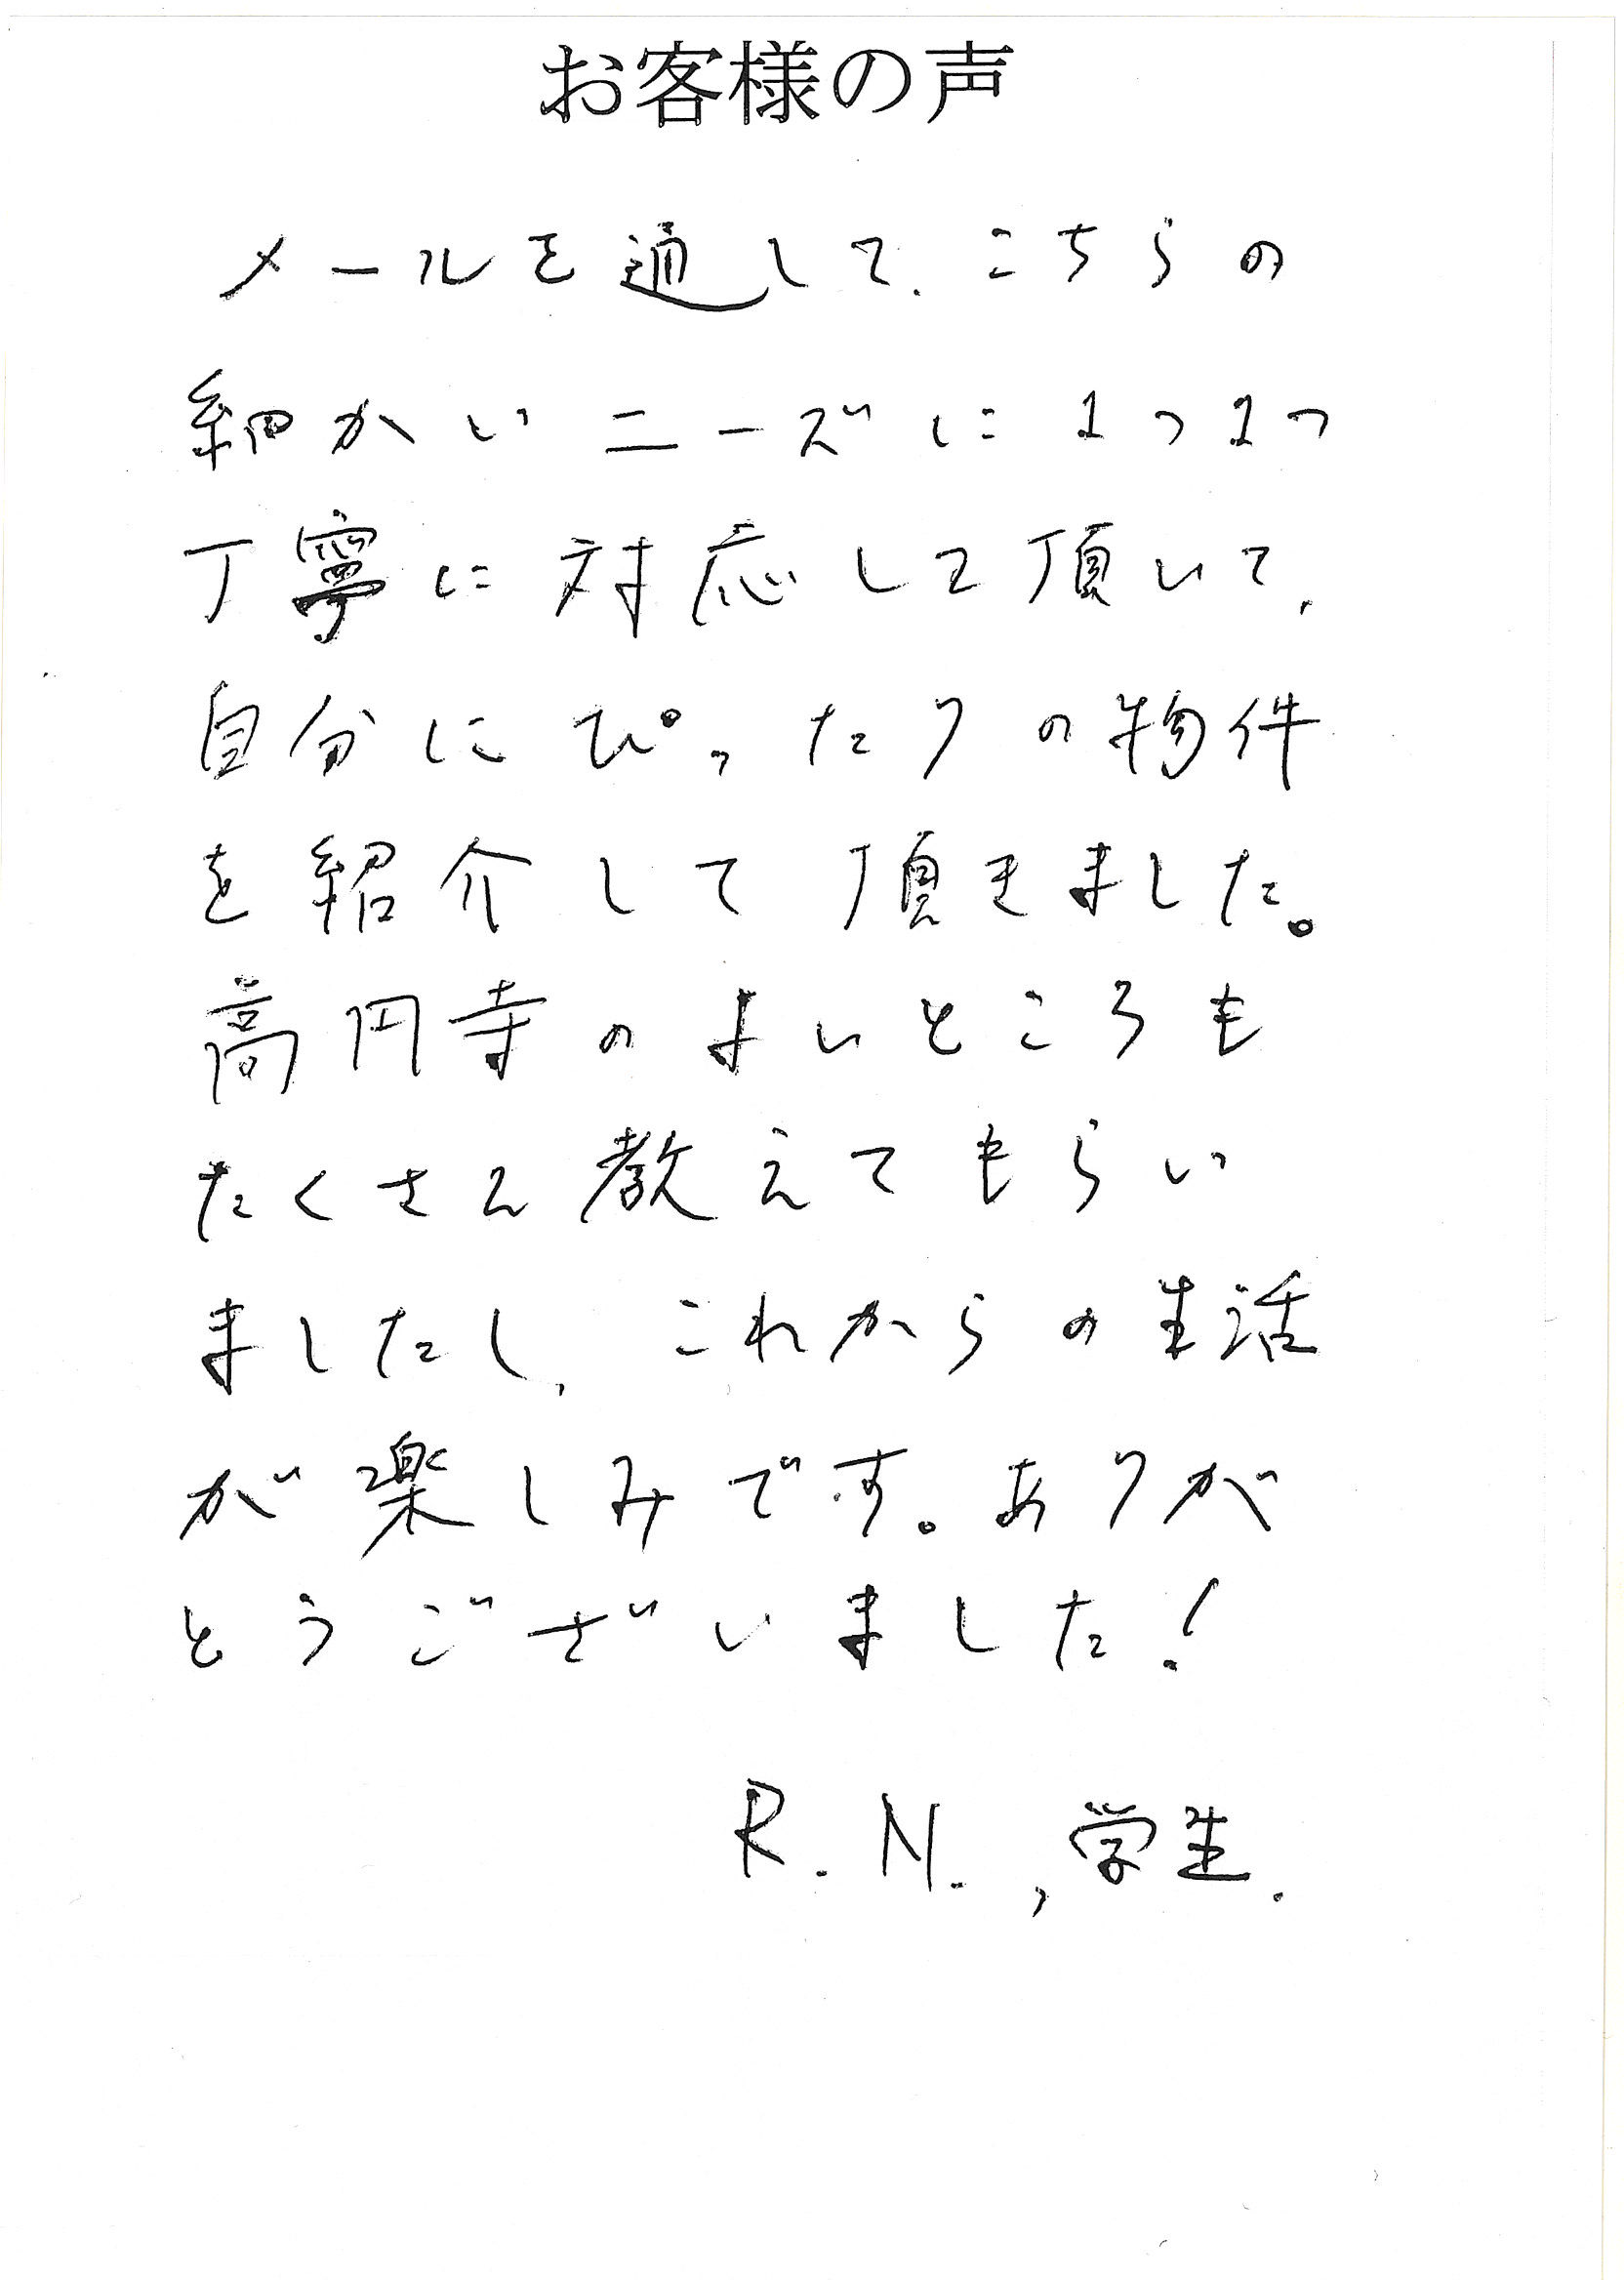 お客様の声
メールを通して、こちらの
細かいニーズに1つ1つ
丁寧に対応して頂いて、
自分にぴったりの物件
を紹介して頂きました。
高円寺のよいところも
たくさん教えてもらい
ましたし、これからの生活
が楽しみです。ありが
とうございました!
R.N.,学生.